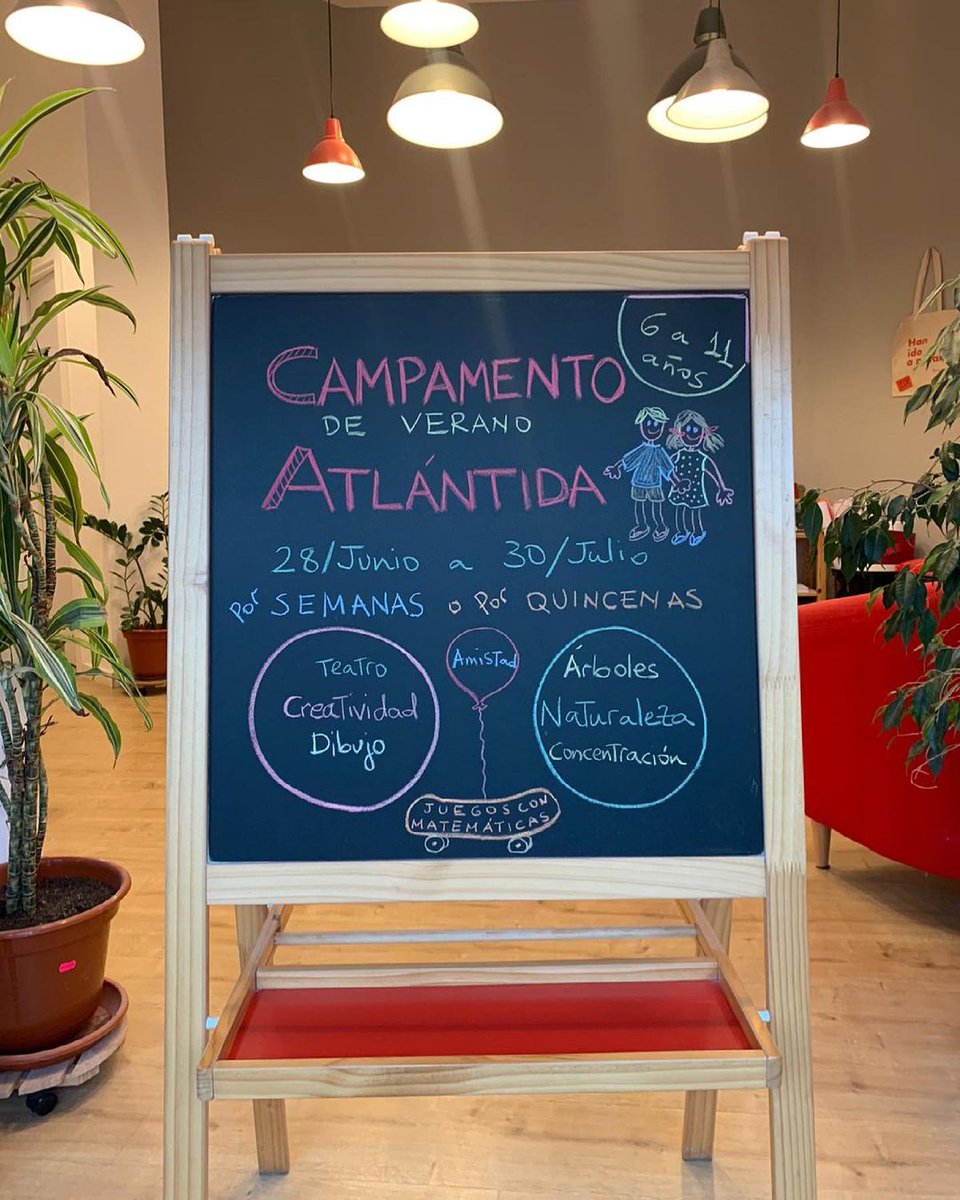 6 a 11
años
CAMPAMENTO
DE VERANO
ATLÁNTIDA
28/Junio a 30/Julio
por SEMANAS o por QUINCENAS
Teatro
Creatividad
Dibujo
Amistad
Árboles
Naturaleza
Concentración
JUEGOS CON
MATEMÁTICAS
Han
ido